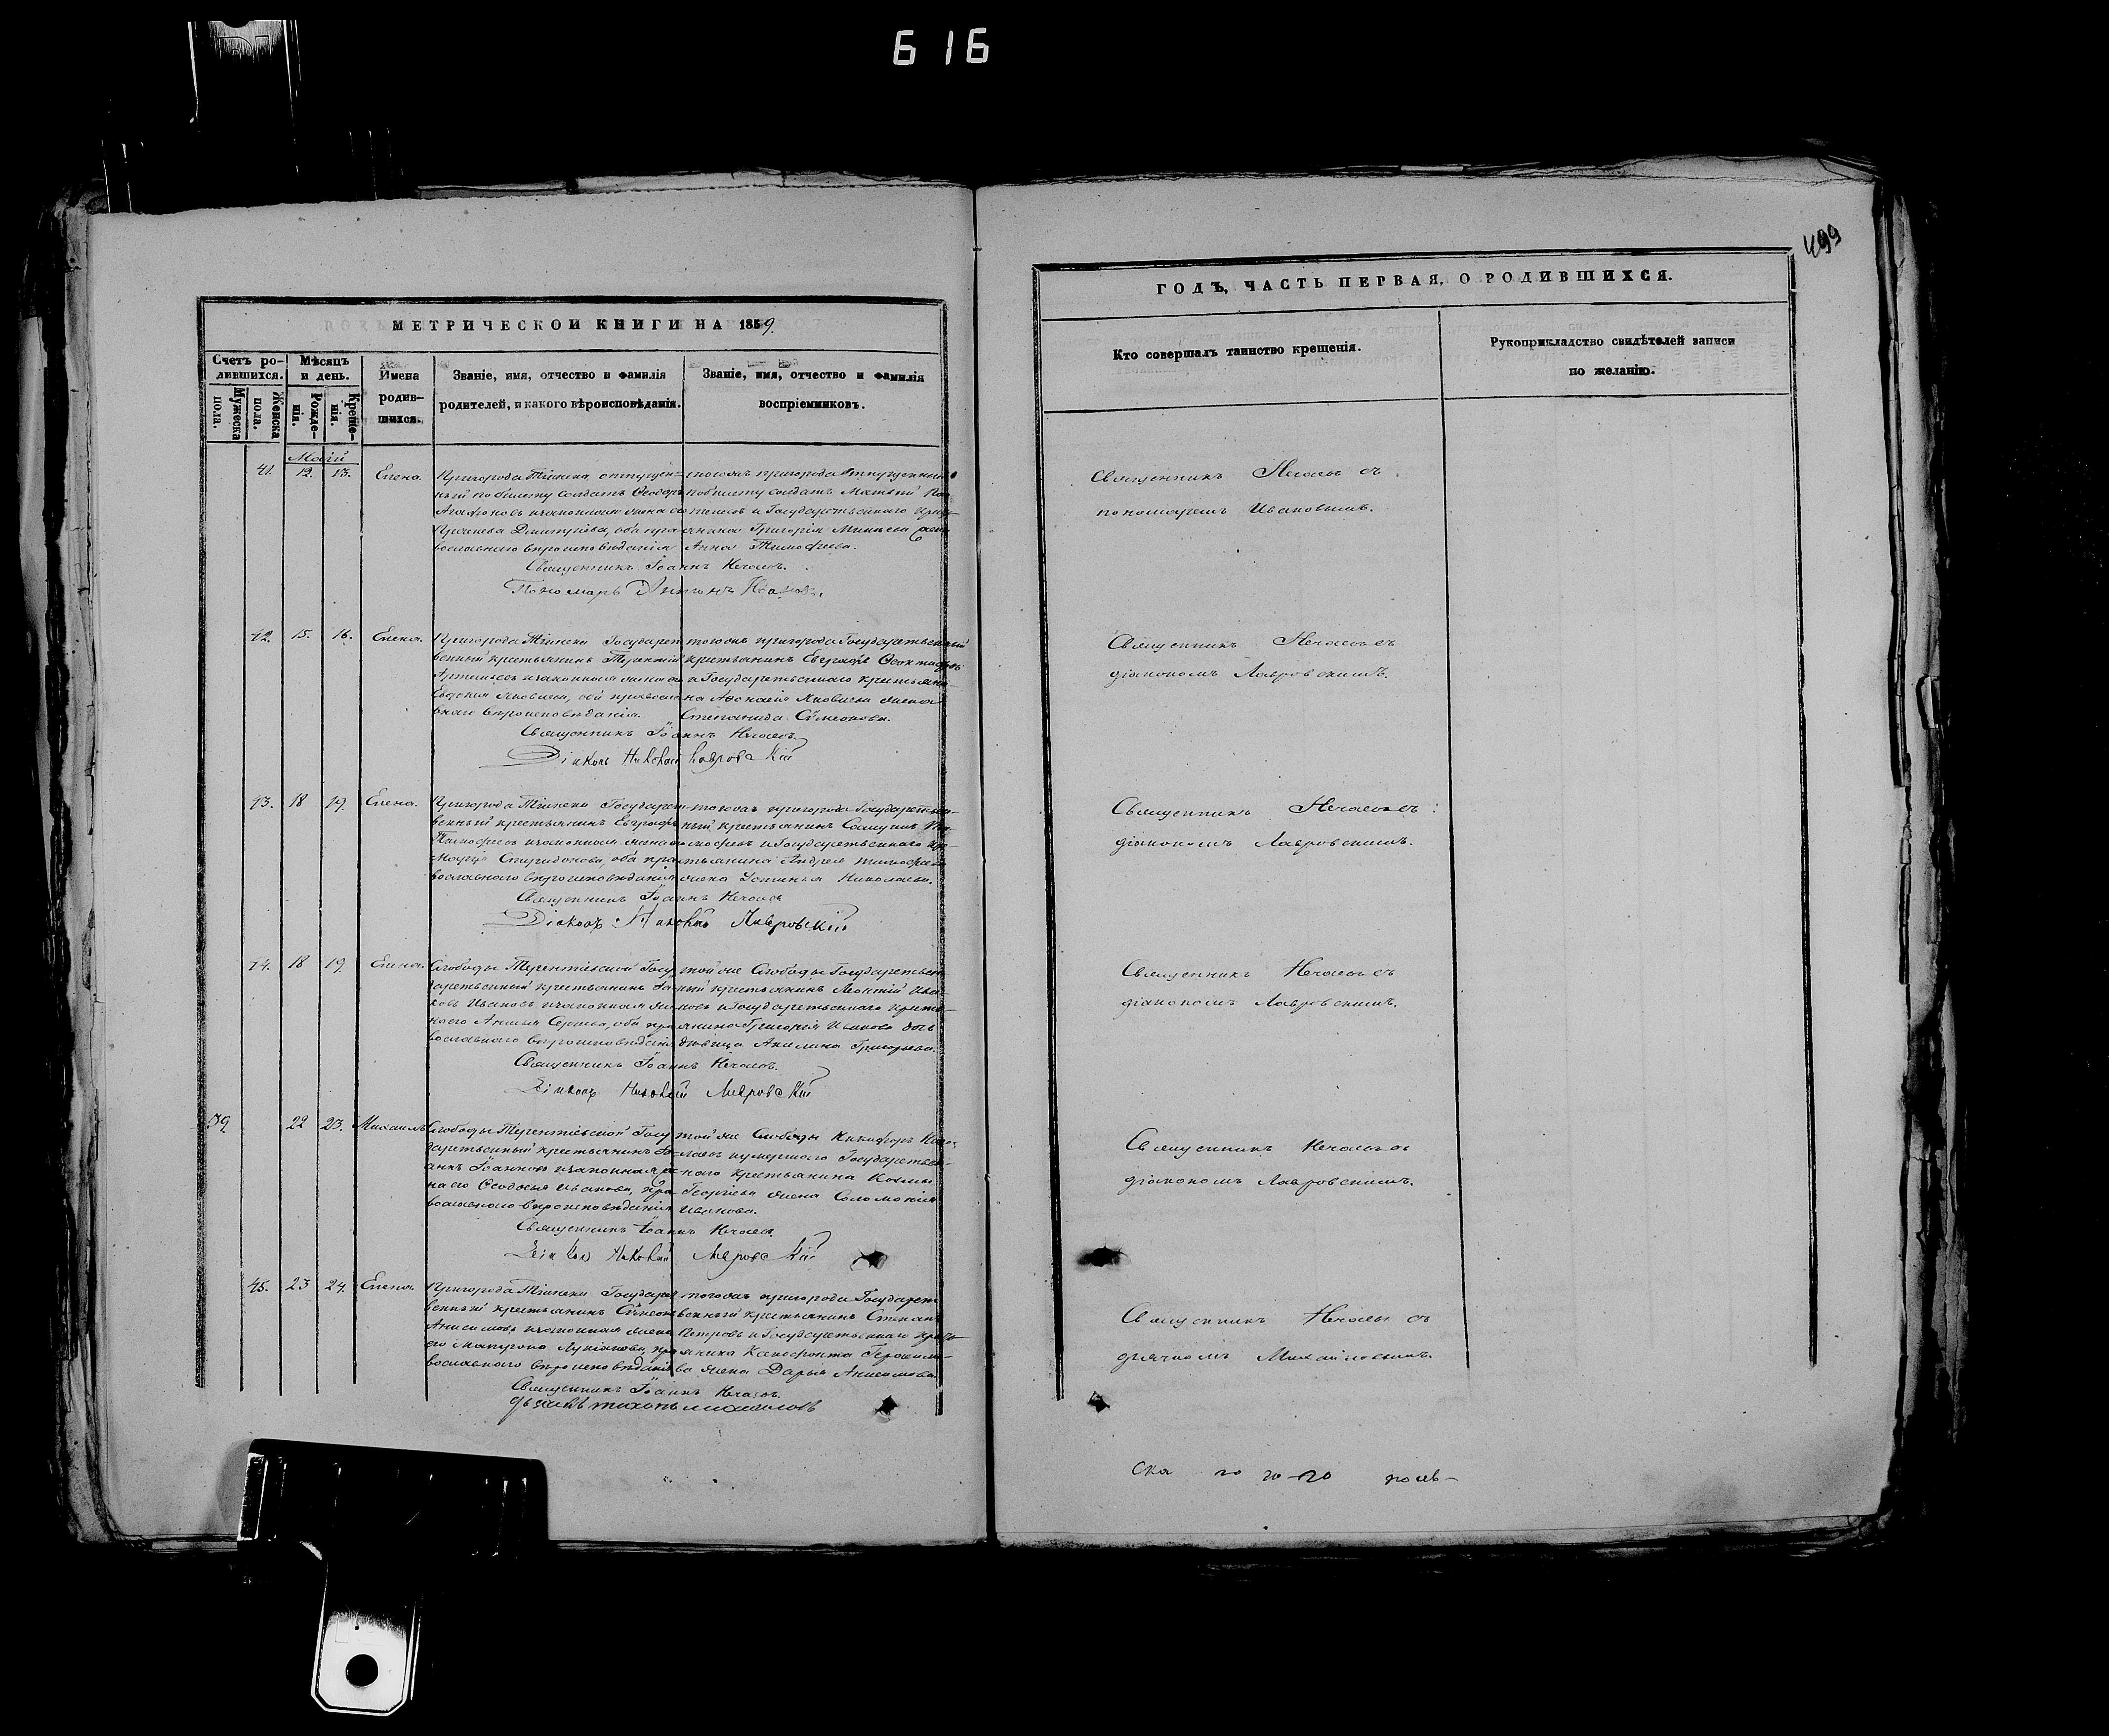 616
499
МЕТРИЧЕСКОЙ КНИГИ НА 1859.
Счетъ ро-
дившихся.
Мужеска пола.
Женска пола.
Мѣсяцъ
и день.
Рожде-
нія.
Креще-
нія.
Имена
родив-
шихся.
Званіе, имя, отчество и фамилія
родителей, и какого вѣроисповѣданія.
Званіе, имя, отчество и фамилія
воспріемниковъ.
ГОДЪ, ЧАСТЬ ПЕРВАЯ, О РОДИВШИХСЯ.
Кто совершалъ таинство крещенія.
Рукоприкладство свидѣтелей записи
по желанію.
Маій
41. 12. 13. Елена.
Пригорода Тіинска отпущен-
ный по билету солдатъ Ѳеодоръ
Агафоновъ и законная жена его
Дмитріева, оба пра-
вославнаго вѣроисповѣданія
тогожъ пригорода отпущенный
по билету солдатъ Матвей
и Государственнаго
Григорія Минаева
Анна Тимофеева.
Священникъ Іоаннъ Нечаевъ.
Пономарь Ивановъ.
Священникъ Нечаевъ съ
пономаремъ Ивановымъ.
42. 15. 16. Елена.
Пригорода Тіинска Государст
венный крестьянинъ Терентій
Артемьевъ и законная жена его
Евдокія Яковлева, оба правосла
внаго вѣроисповѣданія.
тогожъ пригорода Государственный
крестьянинъ Евграфъ
и Государственнаго крестьяни-
на Аѳонасія Яковлева жена
Степанида Сѵмеонова.
Священникъ Іоаннъ Нечаевъ.
Діаконъ Николай Лавровскій
Священникъ Нечаевъ съ
діакономъ Лавровскимъ.
43. 18 19. Елена.
Пригорода Тіинска Государст-
венный крестьянинъ Евграфъ
Тимофеевъ и законная жена его
Спиридонова, оба пра
вославнаго вѣроисповѣданія
тогожъ пригорода Государствен-
ный крестьянинъ Самуилъ Ти-
мофеевъ и Государственнаго кре-
стьянина Андрея Тимофеева
жена Устинья Николаева.
Священникъ Іоаннъ Нечаевъ
Діаконъ Николай Лавровскій
Священникъ Нечаевъ съ
діакономъ Лавровскимъ.
44. 18 19. Елена.
Слободы Терентіевской Госу
дарственный крестьянинъ
Ивановъ и законная же
на его Сергеева, оба пра
вославнаго вѣроисповѣдан
той же Слободы Государствен
ный крестьянинъ Леонтій Ива-
новъ и Государственнаго кресть-
янина Григорія Иванова дочь
дѣвица Акилина Григорьева.
Священникъ Іоаннъ Нечаевъ.
Діаконъ Николай Лавровскій
Священникъ Нечаевъ съ
діакономъ Лавровскимъ.
39. 22 23. Михаилъ
Слободы Терентіевской Госу
дарственный крестьянинъ Іо-
аннъ Іоанновъ и законная же
на его Ѳеодосья Иванова, пра
вославнаго вѣроисповѣданія
той же Слободы Никифоръ Нико-
лаевъ и умершаго Государствен-
наго крестьянина Космы
Георгіева жена Соломонія
Иванова.
Священникъ Іоаннъ Нечаевъ.
Діаконъ Николай Лавровскій
Священникъ Нечаевъ съ
діакономъ Лавровскимъ.
45. 23 24. Елена.
Пригорода Тіинска Государст
венный крестьянинъ Сѵмеонъ
Анисимовъ и законная жена
его Матрона Лукіанова, пра
вославнаго вѣроисповѣданія
тогожъ пригорода Государст
венный крестьянинъ Степанъ
Петровъ и Государственнаго кресть-
янина Ксенофонта Герасимо-
ва жена Дарья Анисимова.
Священникъ Іоаннъ Нечаевъ.
дьячекъ тихонъ михаиловъ
Священникъ Нечаевъ съ
дьячкомъ Михайловымъ.